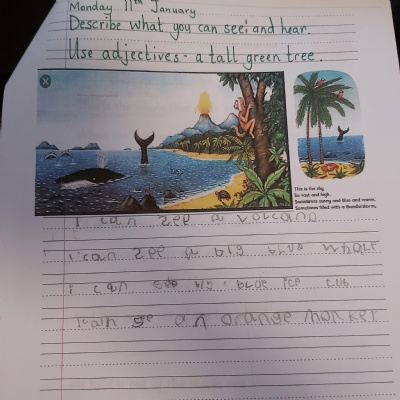 Monday 11th January
Describe what you can see and hear.
Use adjectives - a tall green tree.
This is the sky,
So vast and high,
Sometimes sunny and blue and warm,
Sometimes filled with a thunderstorm,
I can see a volcano
I can see a big blue whale
I can see big blue ice
I can se an orange monkey